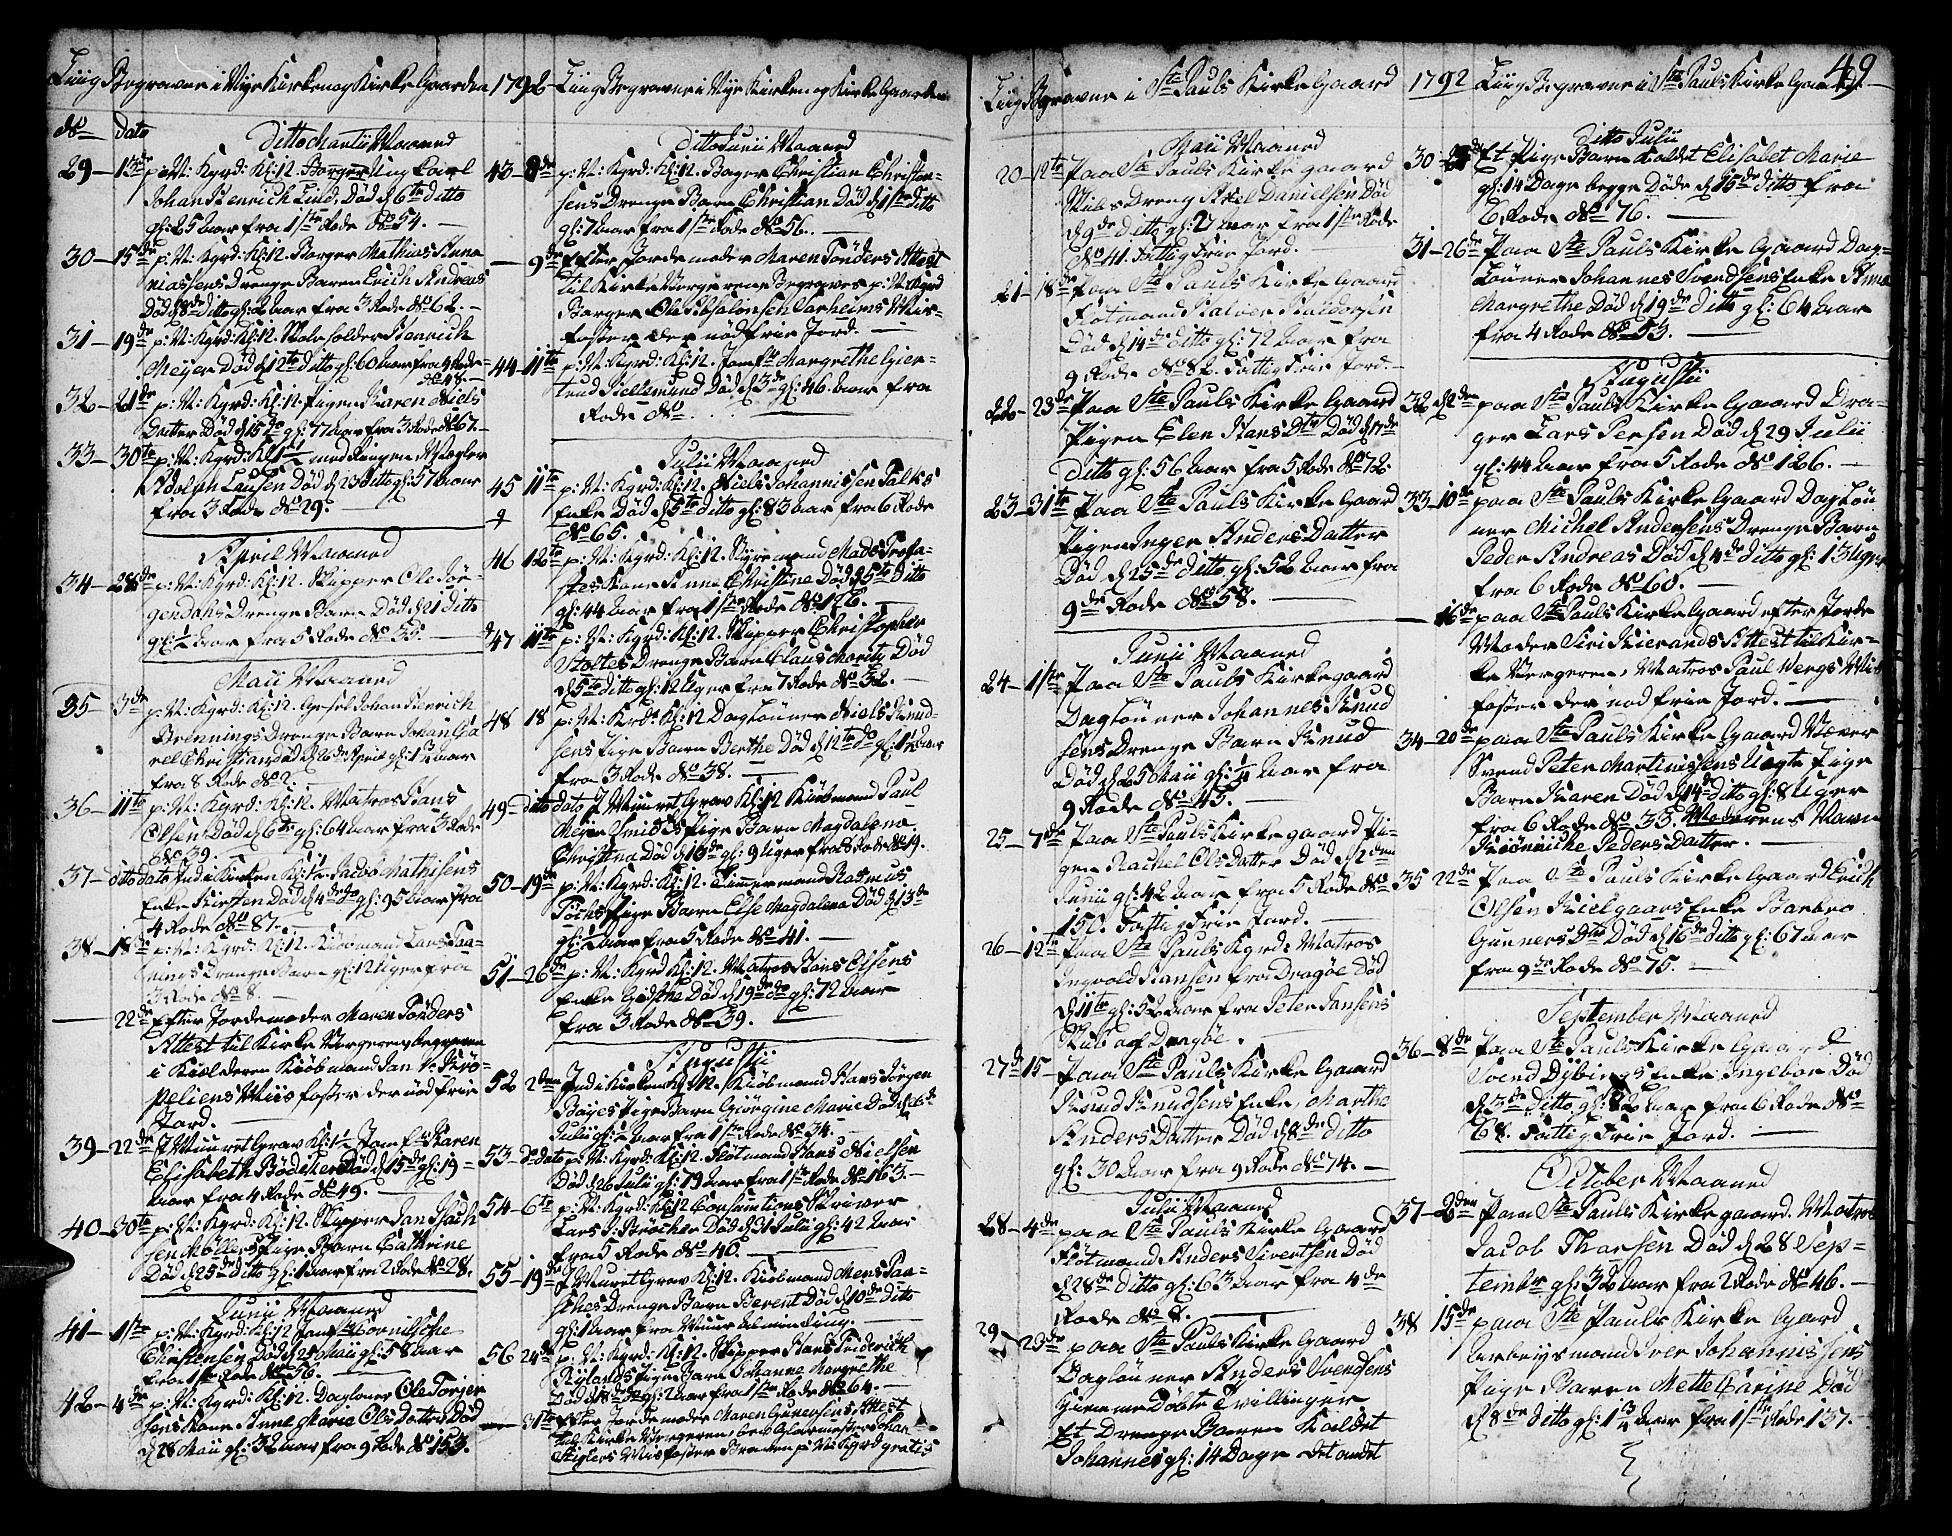 Liig Begravne i Nye Kirken og Kirke Gaarden 1792
No Dato
Ditto Martii Maaned
29 - 13de p: N: Kgrd: Kl: 12. Borger Ung Carl
Johan Henrich Lind, Død d 6te ditto
gl: 25 Aar fra 1ste Rode No 54. —
30 - 15de p: N: Kgrd: Kl: 12. Borger Mathias Anna
niassens Drenge Barn Erich Andreas
Død d 8de Ditto gl: 2 Aar fra 3 Rode No 62. —
31 - 19de p: N: Kgrd: Kl: 12. Henrich
Meyer Død d 12te Ditto gl: 60 Aar fra 4 Rode
No 48. —
32 - 21de p: N: Kgrd: Kl: 12. Pigen Karen Niels
Datter Død d 15 do gl: 77 Aar fra 3 Rode No 67. —
33 - 30te p: N: Kgrd: Kl: 1/2 med Mægler
Adolph Lausen Død d 23 Ditto gl: 57 Aar
fra 3 Rode No 29. —
April Maaned
34 - 28de p: N: Kgrd: Kl: 12. Skipper Ole Jør-
gen Drenge Barn Død d 21 Ditto
gl: 1/2 Aar fra 5 Rode No 35. —
Maii Maaned
35 - 3de p: N: Kgrd: Kl: 12. Gesel Johan Henrich
Brennings Drenge Barn Johan Ga
rel Christian død d 26de April gl: 1 3/4 Aar
fra 8 Rode No 2. —
36 - 11te p: N: Kgrd: Kl: 12. Matros Hans
Olsen Død d 6te gl: 64 Aar fra 3 Rode
No 39. —
37 - ditto dato Ind i Kirken Kl: 1/2. Jacob Mathisens
Enke Kirsten Død d 4de do gl: 95 Aar fra
4 Rode No 87. —
38 - 18de p: N: Kgrd: Kl: 12. Kiøbmand Lars
Drenge Barn gl: 12 Uger fra
3 Rode No 8 —
— 22de Efter Jordemoder Maren Tønders
Attest til Kirke Vergeren, begraven
i Kielderen Kiøbmand Jan
Miis foster der nød frie
Jord. —
39 - 22de I Muuret Grav Kl: 1/2 Jomfru Karen
Elisabeth Bødiker Død d 15de gl: 19 -
Aar fra 4 Rode No 49. —
40 - 30te p: N: Kgrd: Kl: 12. Skipper Jan
sen Møllers Pige Barn Cathrine
Død d 25de Ditto gl: 1 Aar fra 2 Rode No 28. —
Junii Maaned
41 - 1ste p: N: Kgrd: Kl: 12 Jomfru Cornilsche
Christensen Død d 25 Maii gl: 58 Aar
fra 1ste Rode No 56. —
42 - 4de p: N: Kgrd: Kl: 12. Dagløner Ole Torjer
sens Kone Anne Marie Ols Datter Død
d 28 Maii gl: 32 Aar fra 9 Rode No 153.
Liig Begravne i Nye Kirken og Kirke Gaarden
Ditto Junii Maaned
43 8de p: N: Kgrd: Kl: 12. Bager Christian Christian-
sens Drenge Barn Christian Død d 1ste ditto
gl: 7 Aar fra 1ste Rode No 56. —
— 9de Efter Jordemoder Maren Tønders Attest
til Kirke Vergerene Begraves p: N: Kgrd
Borger Ole Absalonsen Mis-
foster der nød frie Jord. —
44 - 11te p: N: Kgrd: Kl: 12. Jomfru Margrethe Gier-
trud Hellemund Død d 3de gl: 46 Aar fra
Rode No —
Julii Maaned
45 11te p: N: Kgrd: Kl: 12. Niels Johannissen Falks
Enke Død d 5te Ditto gl: 83 Aar fra 6 Rode
No 65. —
46 12te p: N: Kgrd: Kl: 12. Styrmand Mads Trosa-
Kone Anne Christine Død d 5te Ditto
gl: 44 Aar fra 1ste Rode No 126. —
47 11te p: N: Kgrd: Kl: 12. Skipper Christopher
Stoltes Drenge Barn Claus Moritz Død
d 5te ditto gl: 12 Uger fra 7 Rode No 32. —
48 18 p: N: Kgrd: Kl: 12 Dagløner Niels Knud-
sens Pige Barn Berthe Død d 12te do gl: 1 1/2 Aar
fra 3 Rode No 38. —
49 - dito dato I Muuret Grav Kl: 12 Kiøbmand Paul
Meyer Smidts Pige Barn Magdalena
Christina Død d 10de gl: 9 Uger fra 8 Rode No 19.
50 - 19de p: N: Kgrd: Kl: 12. Timmermand Rasmus
Pige Barn Else Magdalena Død d 13de
gl: Aar fra 5 Rode No 41. —
51 - 26de p: N: Kgrd Kl: 12. Matros Hans Olsens
Enke Gidsche Død d 19de do gl: 72 Aar
fra 3 Rode No 39. —
Augustii
52 2den Ind i Kirken Kl: 12. Kiøbmand Hans Jørgen
Boyes Pige Barn Giørgine Marie Død d 26de
Julii gl: Aar fra 1ste Rode No 34. —
53 - Do dato p: N: Kgrd: Kl: 12. Flotmand Hans Nielsen
Død d 26 Julii gl: 79 Aar fra 1ste Rode No 163. —
54 - 6te p: N: Kgrd: Kl: 12 Consumtions Skriver
Lars J: Brøcher Død d 31 Julii gl: 42 Aar
fra 5 Rode No 46. —
55 - 19de I Muret Grav Kl: 12. Kiøbmand Mens Paa-
sches Drenge Barn Berent Død d 10de Ditto
gl: 1 Aar fra Muur Alminding. —
56 24de p: N: Kgrd: Kl: 12. Skipper Hans Friderich
Rylands Pige Barn Johanne Margrethe
Død d 18de do gl: Aar fra 1ste Rode No 64. —
— 31te Efter Jordemoder Maren Gunersens Attest
til Kirke Vergeren, bes: Glarmester Johan
Stiglers Misfoster Begraven p: N: Kgrd gratis
Liig Begravne i Ste Pauls Kirke Gaard 1792
Maii Maaned
20 - 12te Paa Ste Pauls Kirke gaard
Dreng Axel Danielsen Død
d 9de ditto gl: 27 Aar fra 1ste Rode
No 41. Fattig Frie Jord.
21 - 18de Paa Ste Pauls Kirke Gaard
Flotmand Halvor Haldorsen
Død d 14de ditto gl: 72 Aar fra
9 Rode No 82. Fattig Frie Jord. —
22 - 23de Paa Ste Pauls Kirke Gaard
Pigen Elen Hans Dtr Død d 17de
Ditto gl: 56 Aar fra 5 Rode No 72.
23 - 31te Paa Ste Pauls Kirke Gaard
Pigen Inger Anders Datter
Død d 25de Ditto gl: 52 Aar fra
9de Rode No 58. —
Junii Maaned
24 - 1ste Paa Ste Pauls Kirkegaard
Dagløner Johannes Knud
sens Drenge Barn Knud
Død d 25 Maii gl: 1/4 Aar fra
9 Rode No 45. —
25 - 7de Paa Ste Pauls Kirke gaard Pi-
gen Rachel Ols Datter Død d 2den
Junii gl: 42 Aar fra 5 Rode No
150. Fattig Frie Jord. —
26 - 12te Paa Ste Pauls Kgrd: Matros
Ingvold Hansen fra Dragøe Død
d 11te gl: 52 Aar fra Peter Jansens
Skib af Dragøe.
27de 15 Paa Ste Pauls Kirke Gaard
Knud Knudsens Enke, Marthe
Anders Datter Død d 8de Ditto
gl: 30 Aar fra 9 Rode No 74. —
Julii Maaned
28 - 4de paa Ste Pauls Kirke Gaard
Flotmand Anders Sivertsen Død
d 28de Ditto gl: 63 Aar fra 4de
Rode No 8. —
29 - 23de paa Ste Pauls Kirke Gaard
Dagløner Anders Svendsens
Hiemme Døbte Tvillinger
Et Drenge Barn Kaldet
Johannes gl: 14 Dage det andet
Liig Begravne i Ste Pauls Kirke Gaard 49
Ditto Julii
30 Et Pige Barn Kaldet Elisabet Marie
gl: 14 Dage begge Døde d 15de ditto fra
6 Rode No 76. —
31 - 26de Paa Ste Pauls Kirke Gaard Dag-
Løner Johannes Svendsens Enke Anna
Margrethe Død d 19de ditto gl: 64 Aar
fra 4 Rode No 53. —
Augustii
32 2den paa Ste Pauls Kirke Gaard Dra-
ger Lars Persen Død d 29 Julii
gl: 44 Aar fra 5 Rode No 126. —
33 - 10de paa Ste Pauls Kirke Gaard Dagløn
ner Michel Andersens Drenge Barn
Peder Andreas Død d 4de Ditto gl: 13 Uger
fra 6 Rode No 60. —
— 16de paa Ste Pauls Kirke Gaard efter Jorde
Moder Siri Attest til Kir-
ke Vergeren, Matros Paul Vergs Mis
foster der nød frie Jord. —
34 - 20de paa Ste Pauls Kirke Gaard Væver
Svend Peter Martinissens Uægte Pige
Barn Karen Død d 14de ditto gl: 8 Uger
fra 6 Rode No 33. Moderens Navn
Peders Datter. —
35 22de Paa Ste Pauls Kirke Gaard Erich
Olsen Kielgaars Enke Barbro
Gunners Dtr Død d 16de ditto gl: 67 Aar
fra 9de Rode No 75. —
September Maaned
36 - 8de Paa Ste Pauls Kirke Gaard
Svend Dybings Enke Ingebor Død
d 3de Ditto gl: 82 Aar fra 6 Rode No
68. Fattig Frie Jord. —
October Maaned
37 - 2den Paa Ste Pauls Kirke gaard. Matros
Jacob Thorsen Død d 28 Sep-
tember gl: 32 Aar fra 2 Rode No 46. —
38 15de paa Ste Pauls Kirke Gaard
Arbeysmand Iver Johannissens
Pige Barn Mette Carine Død
d 8de ditto gl: 1 3/4 Aar fra 1ste Rode 137. —